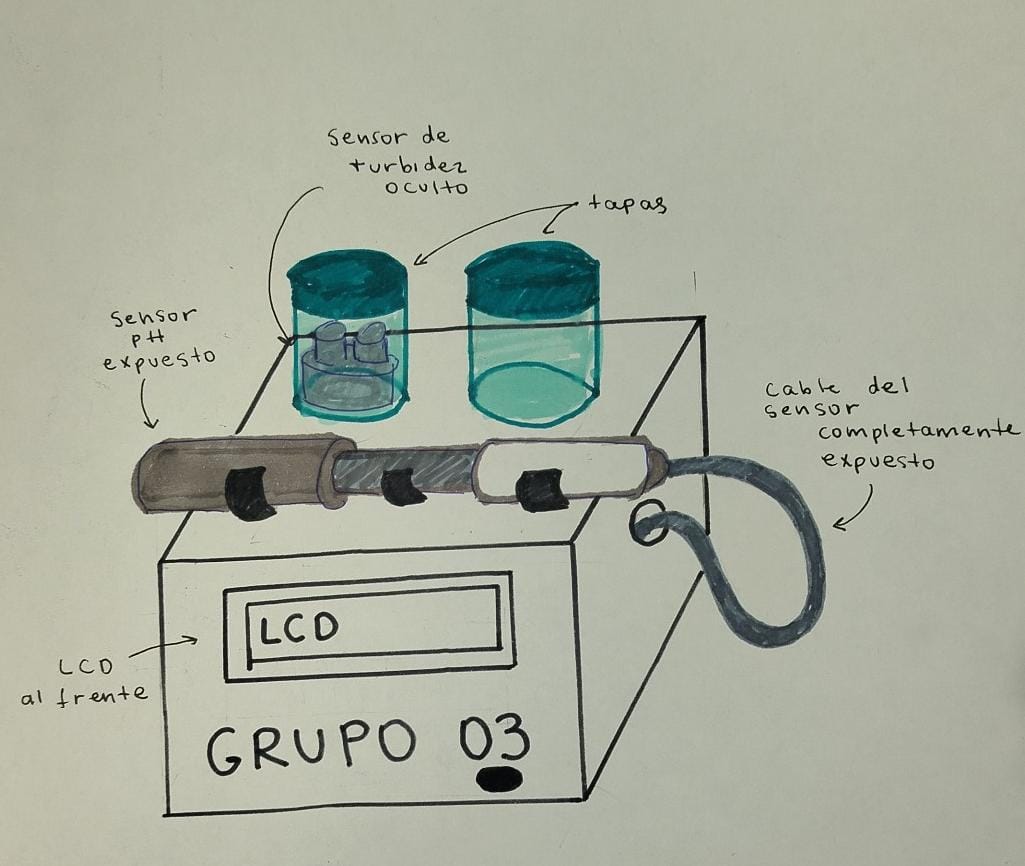 sensor de
turbidez
oculto
tapas
sensor
pH
expuesto
cable del
sensor
completamente
expuesto
LCD
LCD
al frente
GRUPO 03